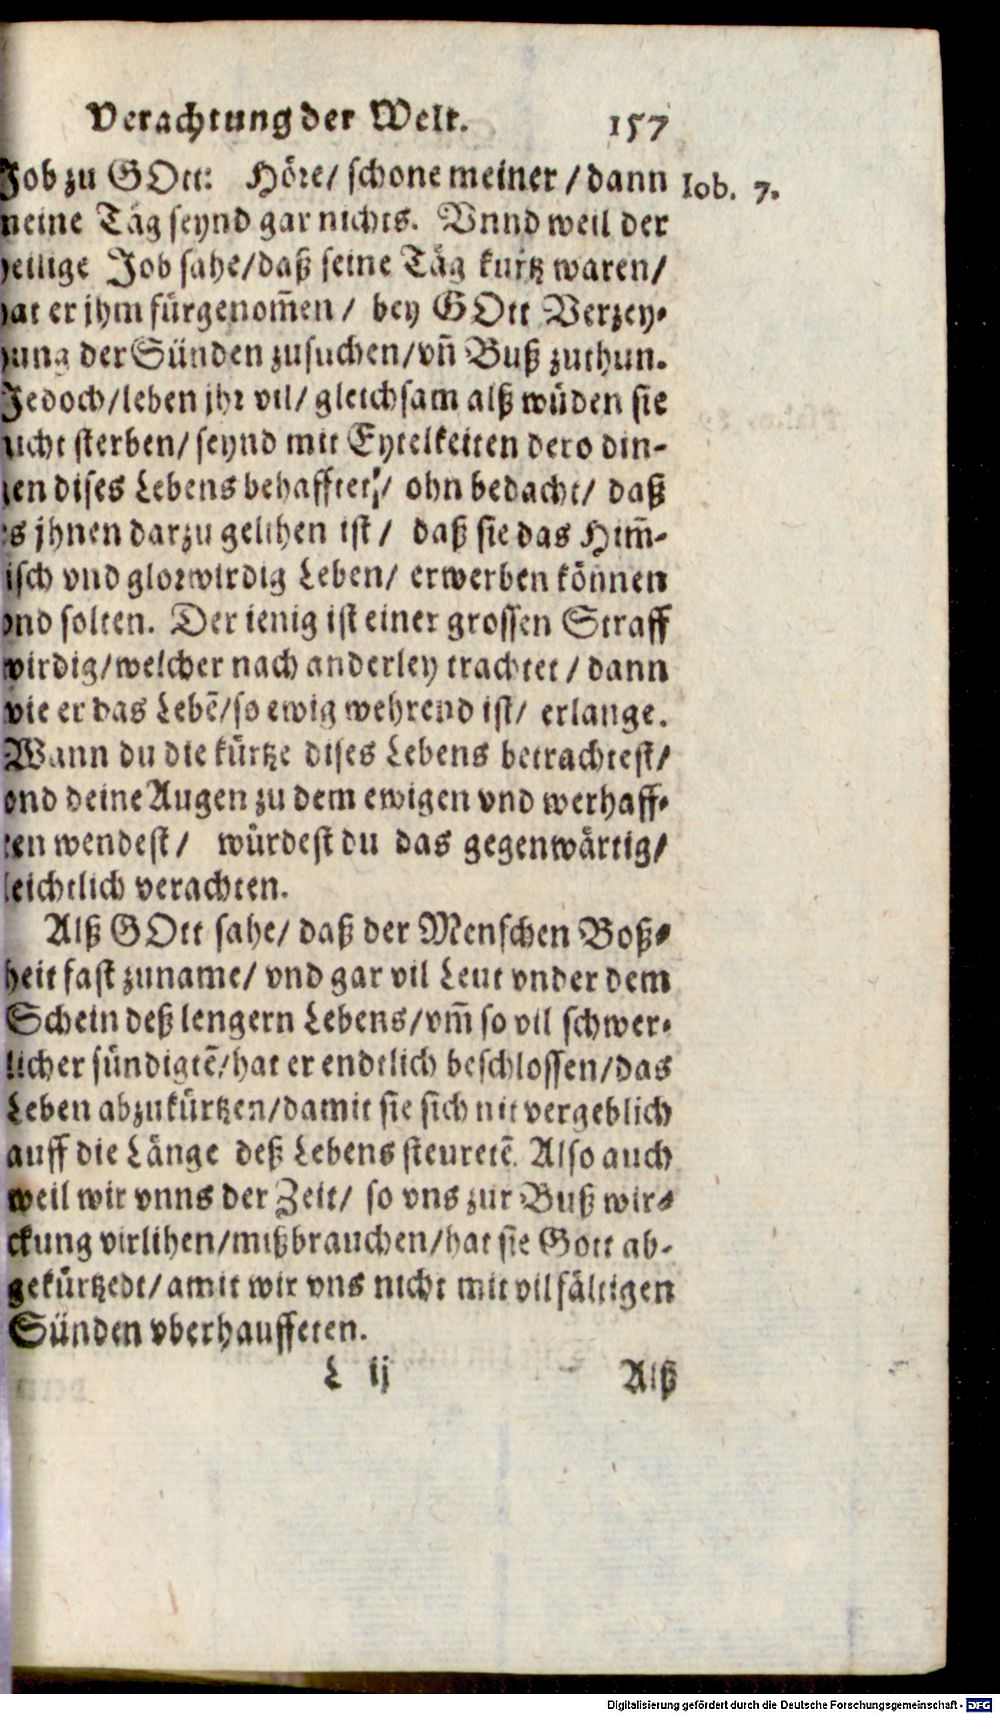 Verachtung der Welt. 157
Job zu GOtt: Höre/ schone meiner / dann Iob. 7.
meine Täg seynd gar nichts. Vnnd weil der
heilige Job sahe/daß seine Täg kurtz waren/
hat er jhm fürgenom̃en / bey GOtt Verzey-
hung der Sünden zusuchen/vñ Buß zuthun.
Jedoch/leben jhr vil/ gleichsam alß wüden sie
nicht sterben/ seynd mit Eytelkeiten dero din-
gen dises Lebens behafftet/ ohn bedacht/ daß
es jhnen darzu gelihen ist / daß sie das Him̃-
lisch vnd glorwirdig Leben/ erwerben können
vnd solten. Der ienig ist einer grossen Straff
wirdig/welcher nach anderley trachtet / dann
wie er das Lebẽ/so ewig wehrend ist/ erlange.
Wann du die kürtze dises Lebens betrachtest/
vnd deine Augen zu dem ewigen vnd werhaff-
ten wendest / würdest du das gegenwärtig/
leichtlich verachten.
Alß GOtt sahe/ daß der Menschen Boß-
heit fast zuname/ vnd gar vil Leut vnder dem
Schein deß lengern Lebens/vm̃ so vil schwer-
licher sündigtẽ/hat er endtlich beschlossen/das
Leben abzukürtzen/damit sie sich nit vergeblich
auff die Länge deß Lebens steuretẽ. Also auch
weil wir vnns der Zeit/ so vns zur Buß wir-
ckung virlihen/mißbrauchen/hat sie Gott ab-
gekürtzedt/amit wir vns nicht mit vilfältigen
Sünden vberhauffeten.
L ij Alß
Digitalisierung gefördert durch die Deutsche Forschungsgemeinschaft - DFG